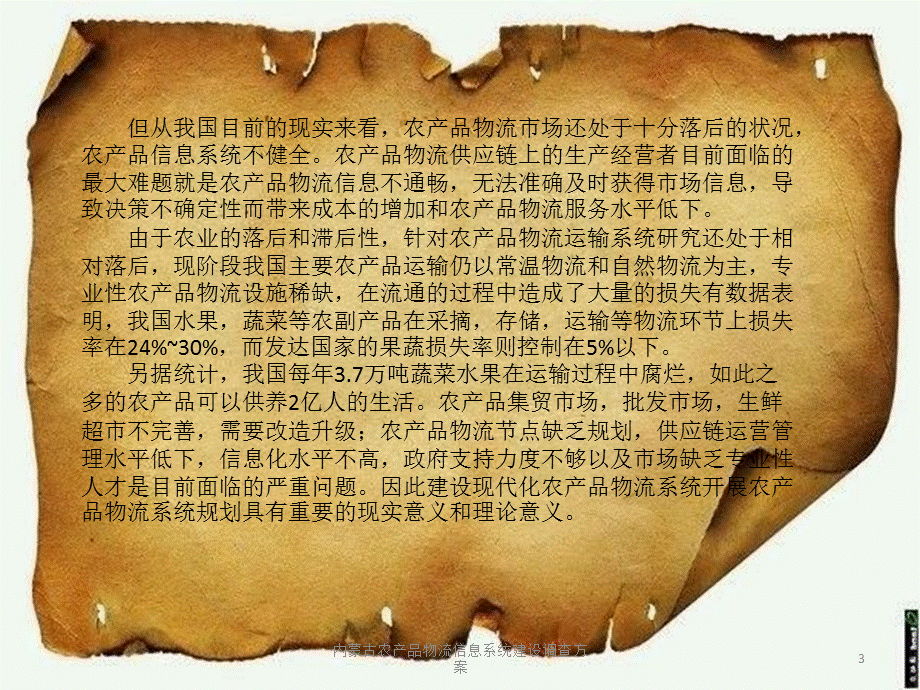 但从我国目前的现实来看，农产品物流市场还处于十分落后的状况，
农产品信息系统不健全。农产品物流供应链上的生产经营者目前面临的
最大难题就是农产品物流信息不通畅，无法准确及时获得市场信息，导
致决策不确定性而带来成本的增加和农产品物流服务水平低下。
由于农业的落后和滞后性，针对农产品物流运输系统研究还处于相
对落后，现阶段我国主要农产品运输仍以常温物流和自然物流为主，专
业性农产品物流设施稀缺，在流通的过程中造成了大量的损失有数据表
明，我国水果，蔬菜等农副产品在采摘，存储，运输等物流环节上损失
率在24%~30%，而发达国家的果蔬损失率则控制在5%以下。
另据统计，我国每年3.7万吨蔬菜水果在运输过程中腐烂，如此之
多的农产品可以供养2亿人的生活。农产品集贸市场，批发市场，生鲜
超市不完善，需要改造升级；农产品物流节点缺乏规划，供应链运营管
理水平低下，信息化水平不高，政府支持力度不够以及市场缺乏专业性
人才是目前面临的严重问题。因此建设现代化农产品物流系统开展农产
品物流系统规划具有重要的现实意义和理论意义。
内蒙古农产品物流信息系统建设调查方
案
3